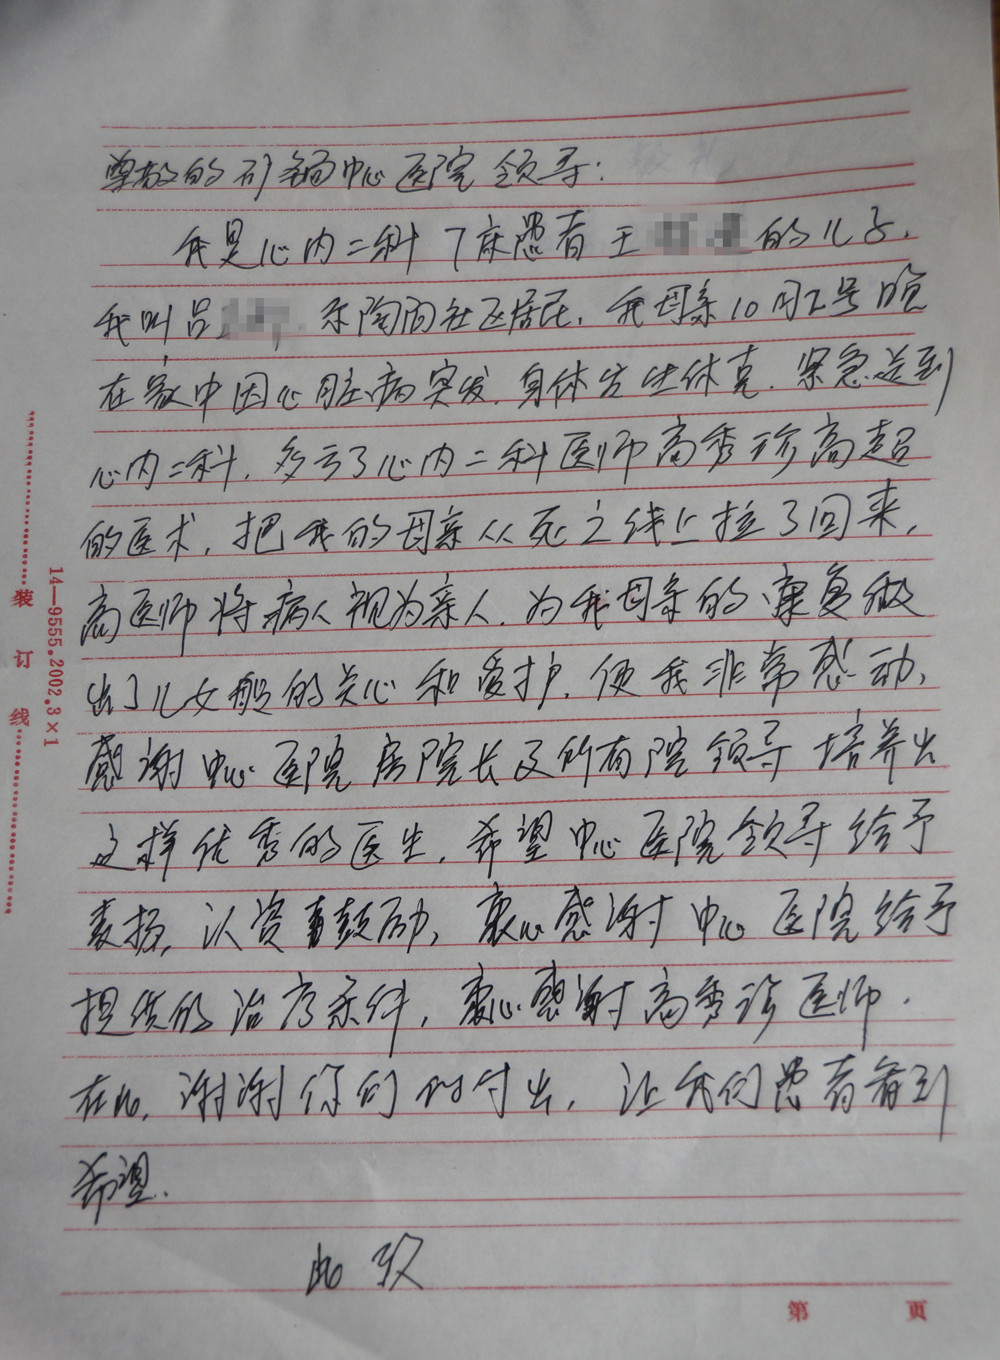 尊敬的矿务局中心医院领导:
我是心内二科7床患者王的儿子.
我叫吕系陶阳社区居民,我母亲10月2号晚
在家中因心脏病突发.身体发生休克.紧急送到
心内二科.多亏了心内二科医师高秀珍高超
的医术,把我的母亲从死亡线上拉了回来,
高医师将病人视为亲人.为我母亲的康复做
出了儿女般的关心和爱护.使我非常感动、
感谢中心医院房院长及所有院领导培养出
这样优秀的医生.希望中心医院领导给予
表扬,以资鼓励,衷心感谢中心医院给予
提供的治疗条件,衷心感谢高秀珍医师.
在此,谢谢你们的付出,让我们患者看到
希望.
此致
装订线
14—9555.2002.3×1
第 页